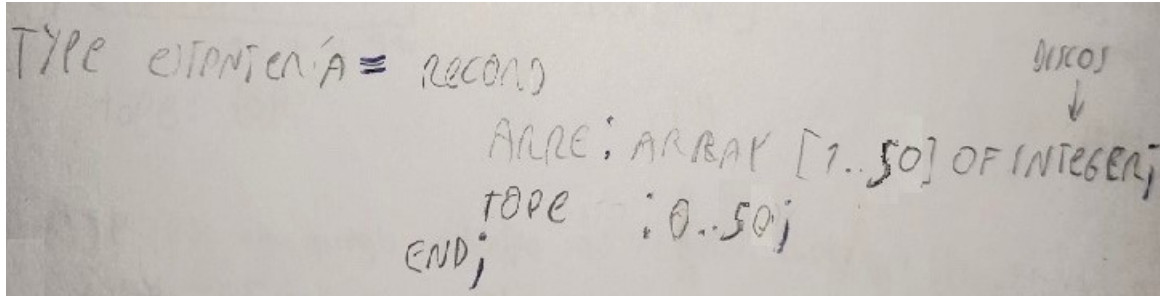 TYPE eSTANTeríA = ReCORD
DISCOS
↓
ARRE : ARRAY [1..50] OF INTeGER;
TOPe : 0..50;
END;